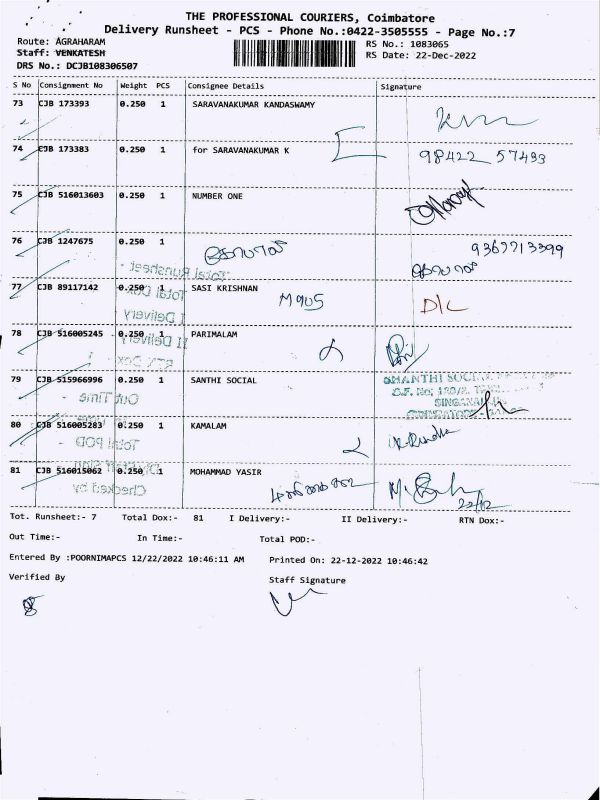 THE PROFESSIONAL COURIERS, Coimbatore
Delivery Runsheet - PCS - Phone No.:0422-3505555 - Page No.:7
Route: AGRAHARAM
RS No.: 1083065
Staff: VENKATESH
RS Date: 22-Dec-2022
DRS No.: DCJB108306507
S No Consignment No Weight PCS Consignee Details Signature
73 CJB 173393 0.250 1 SARAVANAKUMAR KANDASWAMY
74 CJB 173383 0.250 1 for SARAVANAKUMAR K 98422 57433
75 CJB 516013603 0.250 1 NUMBER ONE
76 CJB 1247675 0.250 1 9362713399
Total Runsheet -
77 CJB 89117142 0.250 1 SASI KRISHNAN D/L
Total Dox -
M905
I Delivery
78 CJB 516005245 0.250 1 PARIMALAM
II Delivery
79 CJB 515966996 0.250 1 SANTHI SOCIAL
Out Time -
80 CJB 516005283 0.250 1 KAMALAM
Total POD -
81 CJB 516015062 0.250 1 MOHAMMAD YASIR
Checked by
22/12
Tot. Runsheet:- 7 Total Dox:- 81 I Delivery:- II Delivery:- RTN Dox:-
Out Time:- In Time:- Total POD:-
Entered By :POORNIMAPCS 12/22/2022 10:46:11 AM Printed On: 22-12-2022 10:46:42
Verified By Staff Signature